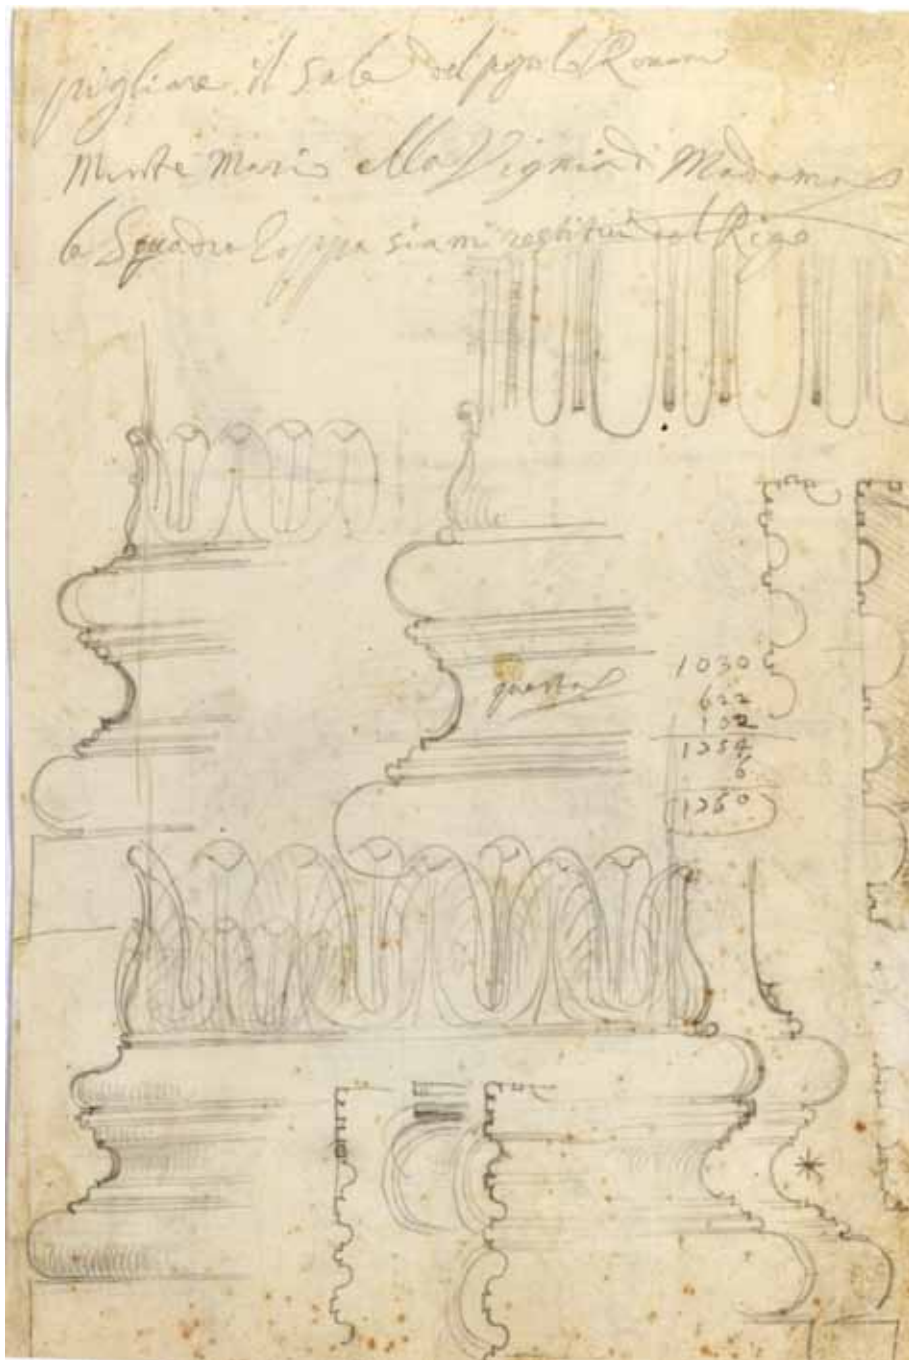 pigliare il Sale del popolo Romano
Monte Mario e lla Vignia di Madama
la Squadra Zoppa siami restituita col Rigo
questa
1030
622
102
1254
6
1260